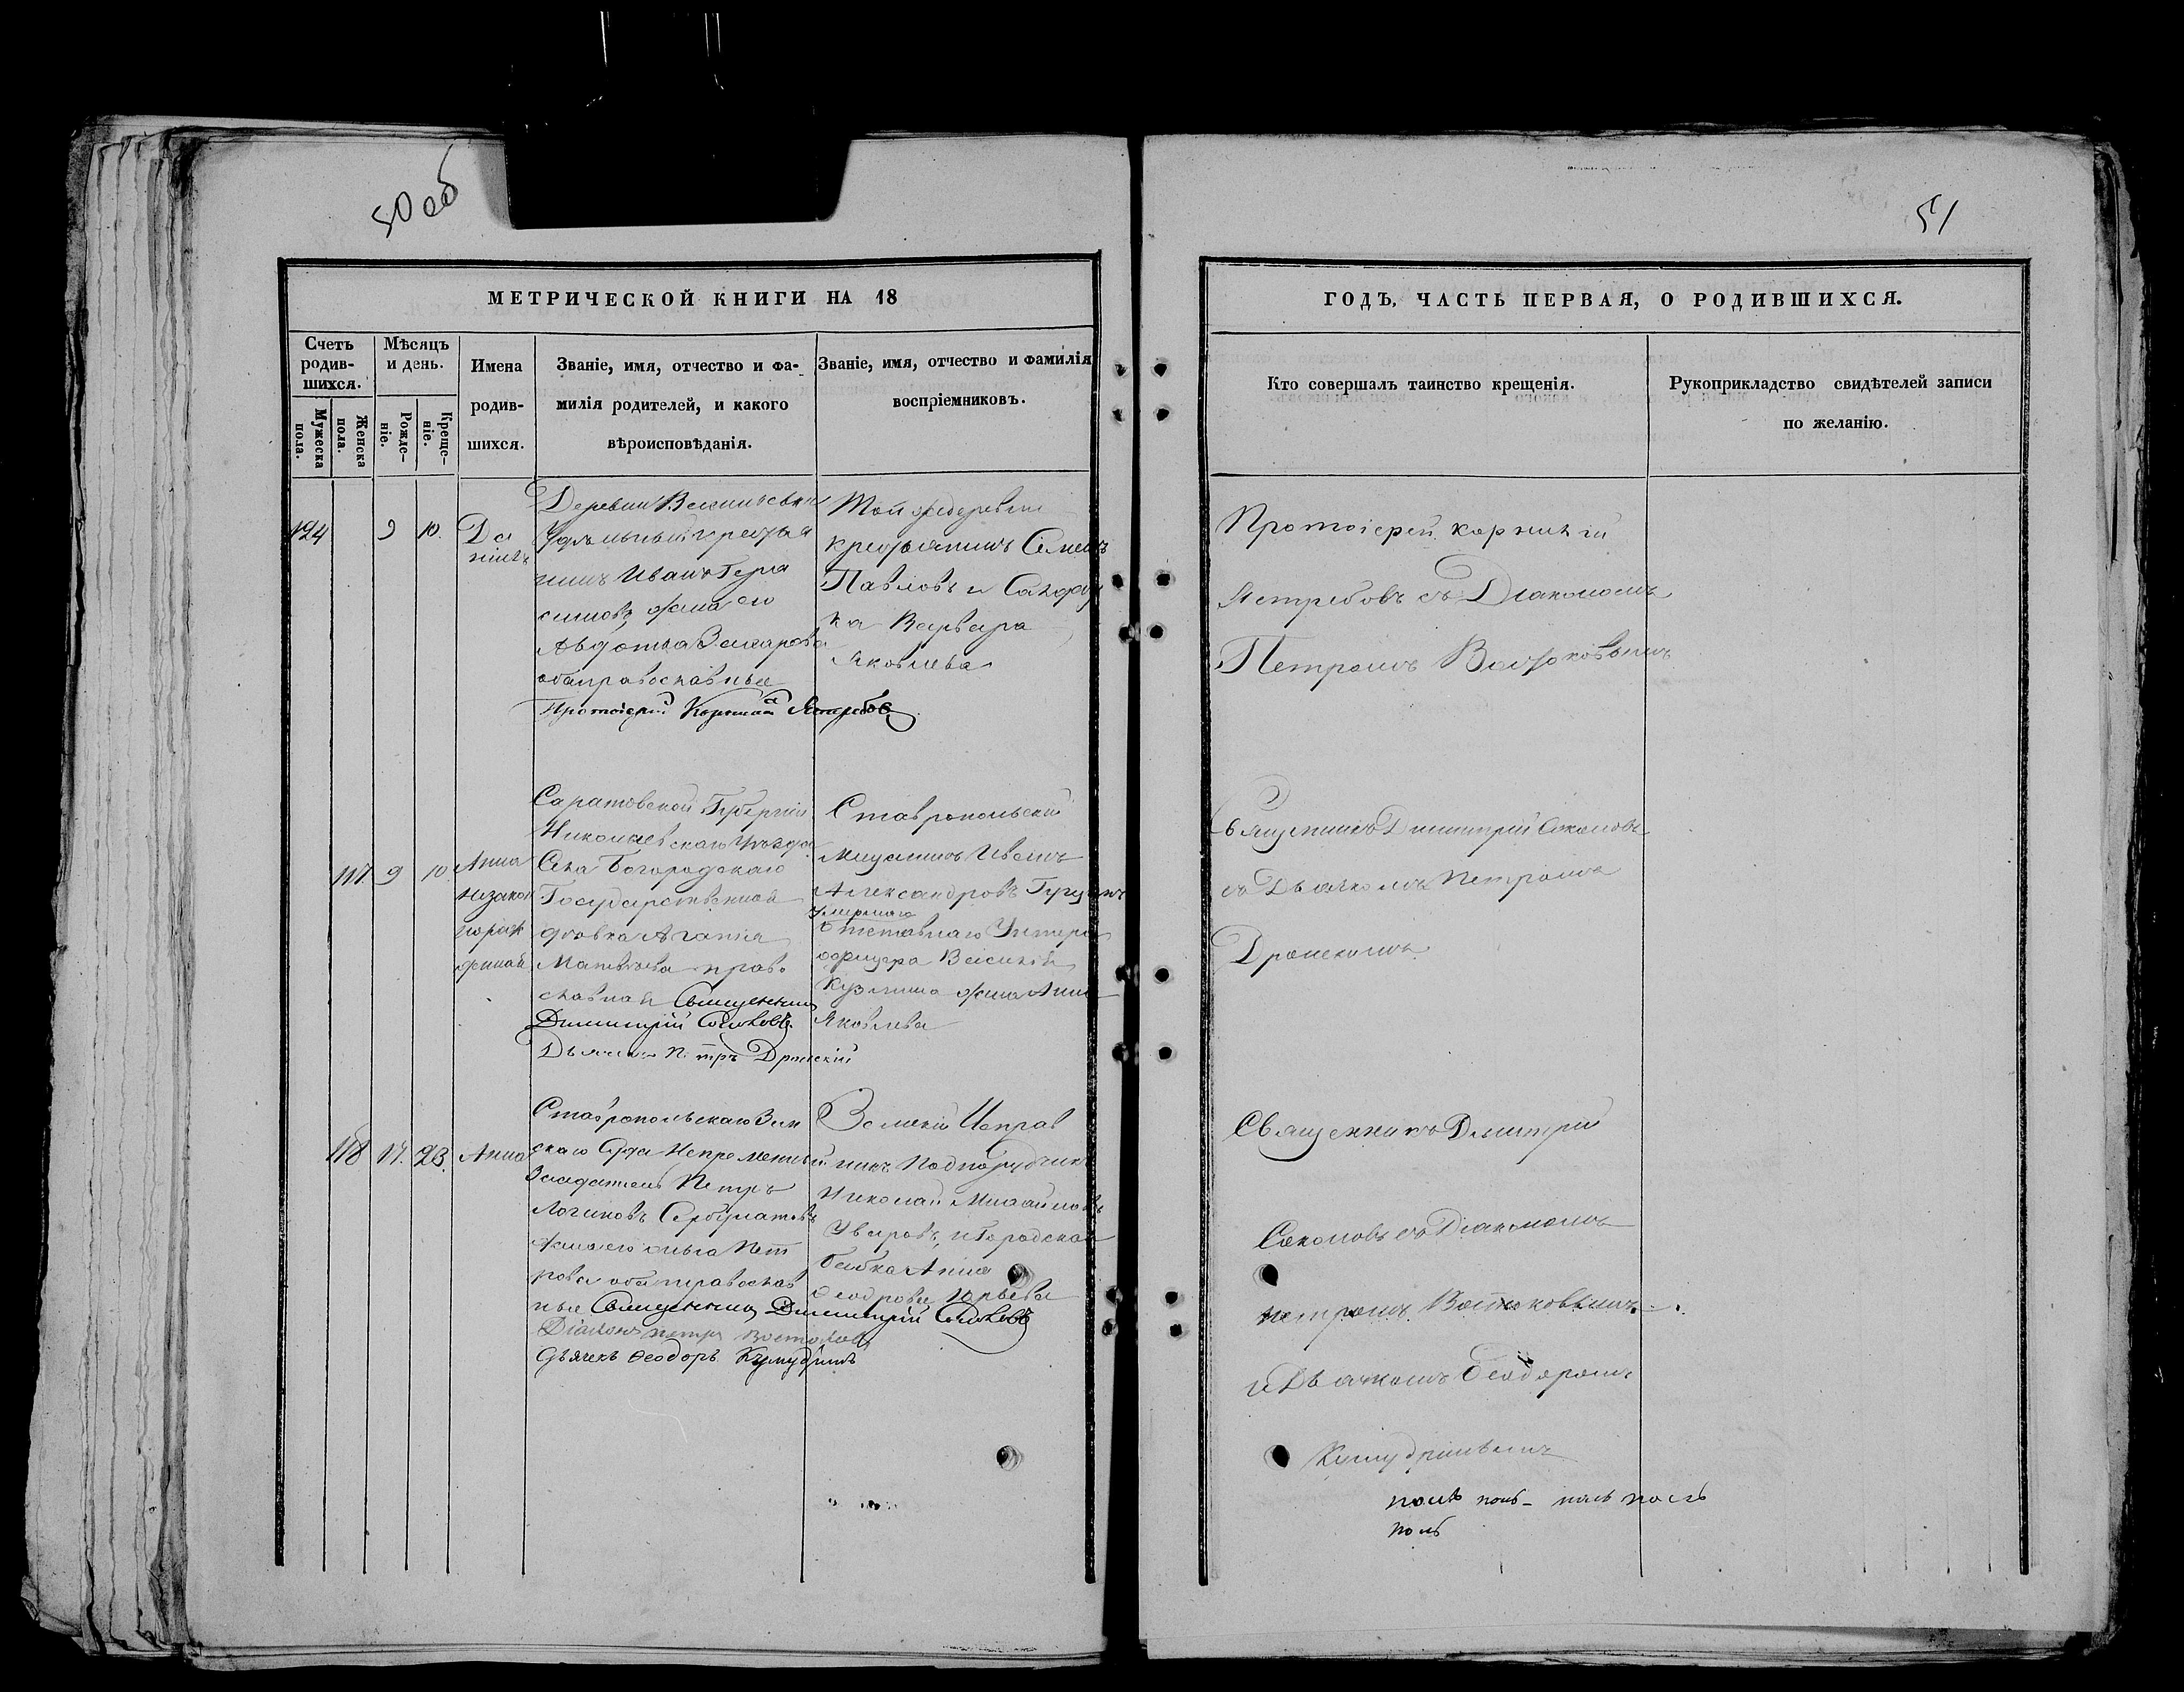 50 об
51
МЕТРИЧЕСКОЙ КНИГИ НА 18
Счетъ родив-шихся.
Мужеска пола.
Женска пола.
Мѣсяцъ и день.
Рожде-ніе.
Креще-ніе.
Имена
родив-
шихся.
Званіе, имя, отчество и фа-
милія родителей, и какого
вѣроисповѣданія.
Званіе, имя, отчество и фамилія
воспріемниковъ.
124
9
10.
Да
ніилъ
Деревни
Удѣльный крестья
нинъ Иванъ Гера
симовъ жена его
Авдотья Захарова
оба православные
Протоіерей Корнилій Ястребовъ
Той же деревни
крестьянинъ Семенъ
Павловъ и
ка Варвара
Яковлева
117.
9
10
Анна
незакон
норож
денная
Саратовской Губерніи
Николаевскаго Уѣзда
Села Богородскаго
Государственная
Матвѣева право
славная Священникъ
Димитрій Соколовъ.
Дьячекъ Петръ Дронскій
Ставропольскій
Мещанинъ Иванъ
Александровъ
умершаго
Отставнаго Унтеръ
офицера Василія
Кузмина жена Анна
Яковлева
118
17.
23.
Анна
Ставропольскаго Зем
скаго Суда Непременный
Заседатель Петръ
Логиновъ
жена его Ольга Пет
рова оба православ
ные Священникъ Димитрій Соколовъ
Діаконъ Петръ Востоковъ
Дьячекъ Ѳеодоръ Кумудринъ
Земскій Исправ
никъ Подпоручикъ
Николай Михайловъ
Уваровъ, и Городская
бабка Анна
Ѳеодрова Юрьева
ГОДЪ, ЧАСТЬ ПЕРВАЯ, О РОДИВШИХСЯ.
Кто совершалъ таинство крещенія.
Рукоприкладство свидѣтелей записи
по желанію.
Протоіерей Корнилій
Ястребовъ съ Діакономъ
Петромъ Востоковымъ
Священникъ Димитрій Соколовъ
съ Дьячкомъ Петромъ
Дронскимъ.
Священникъ Дмитрій
Соколовъ съ Діакономъ
Петромъ Востоковымъ
и Дьячкомъ Ѳеодоромъ